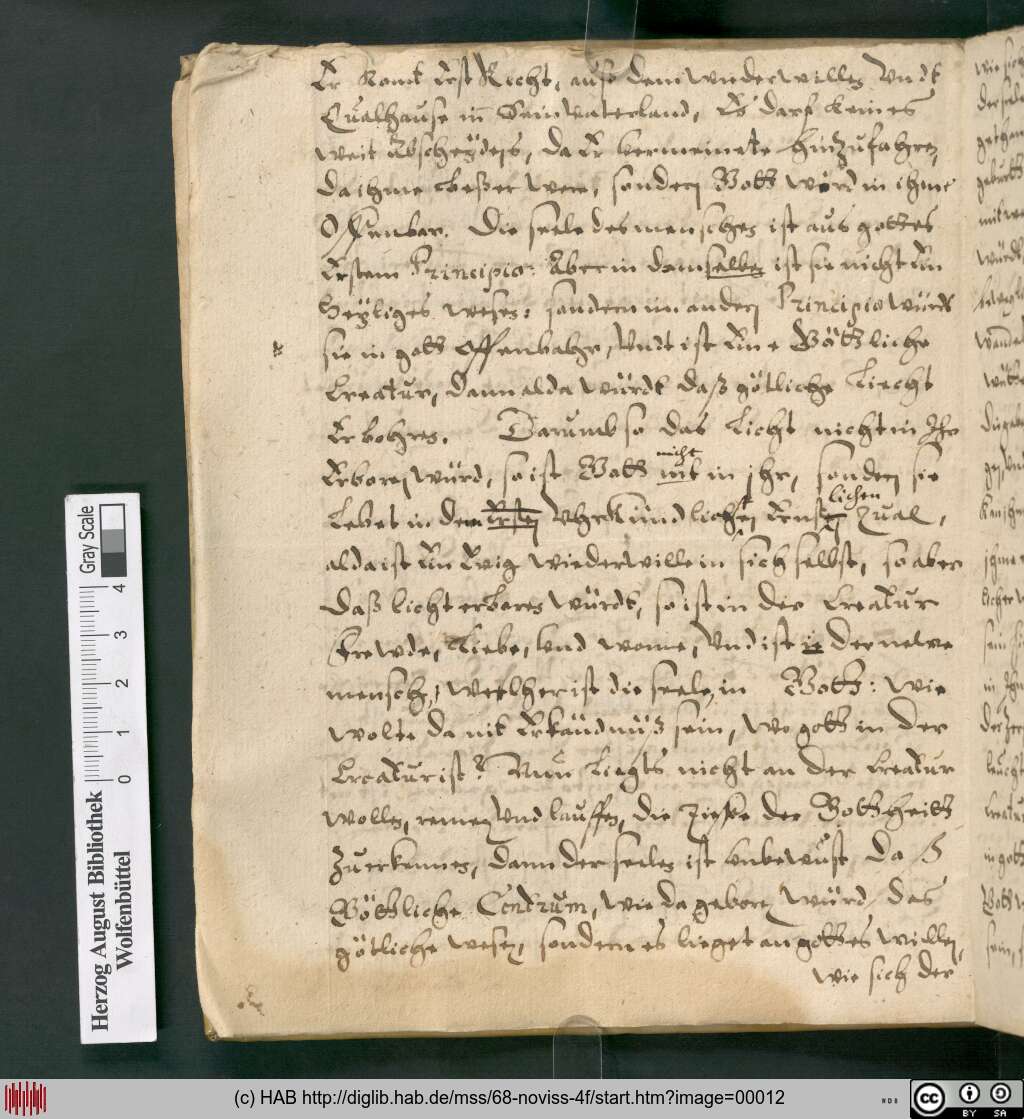 Er komt Erst Recht, auß dem wiederwillen Vndt
Qualhause in Sein vaterland, Es darf keines
weit Abscheydens, da Er vermeinete hinzufahren,
da ihme besser were, sondern Gott würd in ihme
Offenbar. Die seele des menschen ist aus gottes
Erstem Principio: Aber in dem selben ist sie nicht Ein
Heyliges wesen: sondern im andern Principio würdt
sie in gott offenbahr, Vndt ist Eine Göttliche
Creatur, dann alda würdt daß götliche Liecht
Erbohren. Darumb so das Licht nicht in Ihr
nicht
Erboren würd, so ist Gott nit in jhr, sondern sie
lichen
Lebet in dem Ersten Vhrkundlichen Ernsten Qual,
alda ist Ein Ewig wiederwille in sich selbst, so aber
daß licht erboren würdt, so ist in der Creatur
frewde, Liebe, vnd wonne, Vnd ist ie der newe
mensch, welcher ist die seele, in Gott: wie
wolte da nit Erkändnüß sein, wo gott in der
Creatur ist? Nun Liegts nicht an der Creatur
wollen, rennen Vnd lauffen, die Tieffe der Gottheitt
Zuerkennen, dann der seelen ist vnbewust, da
Göttliche Centrum, wie da geboren würd das
götliche wesen, sondern es lieget an gottes willen,
wie sich der
wie
Herzog August Bibliothek
Wolfenbüttel
0 1 2 3 4
Gray Scale
(c) HAB http://diglib.hab.de/mss/68-noviss-4f/start.htm?image=00012
WDB
cc BY SA